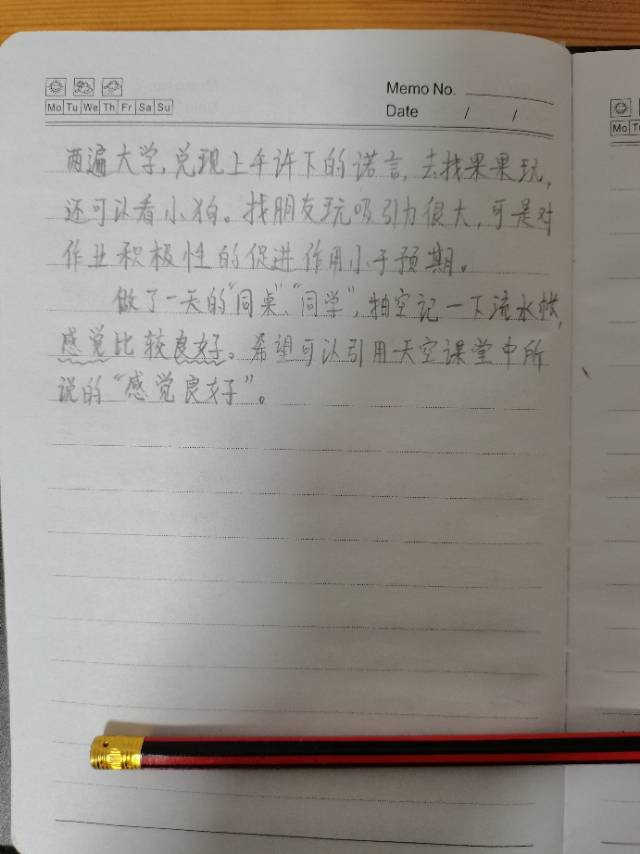 Memo No.
Mo Tu We Th Fr Sa Su
Date / /
两遍大学,兑现上午许下的诺言,去找果果玩,
还可以看小狗。找朋友玩吸引力很大,可是对
作业积极性的促进作用小于预期。
做了一天的“同桌”、“同学”,抽空记一下流水帐,
感觉比较良好。希望可以引用天空课堂中所
说的“感觉良好”。
Mo T